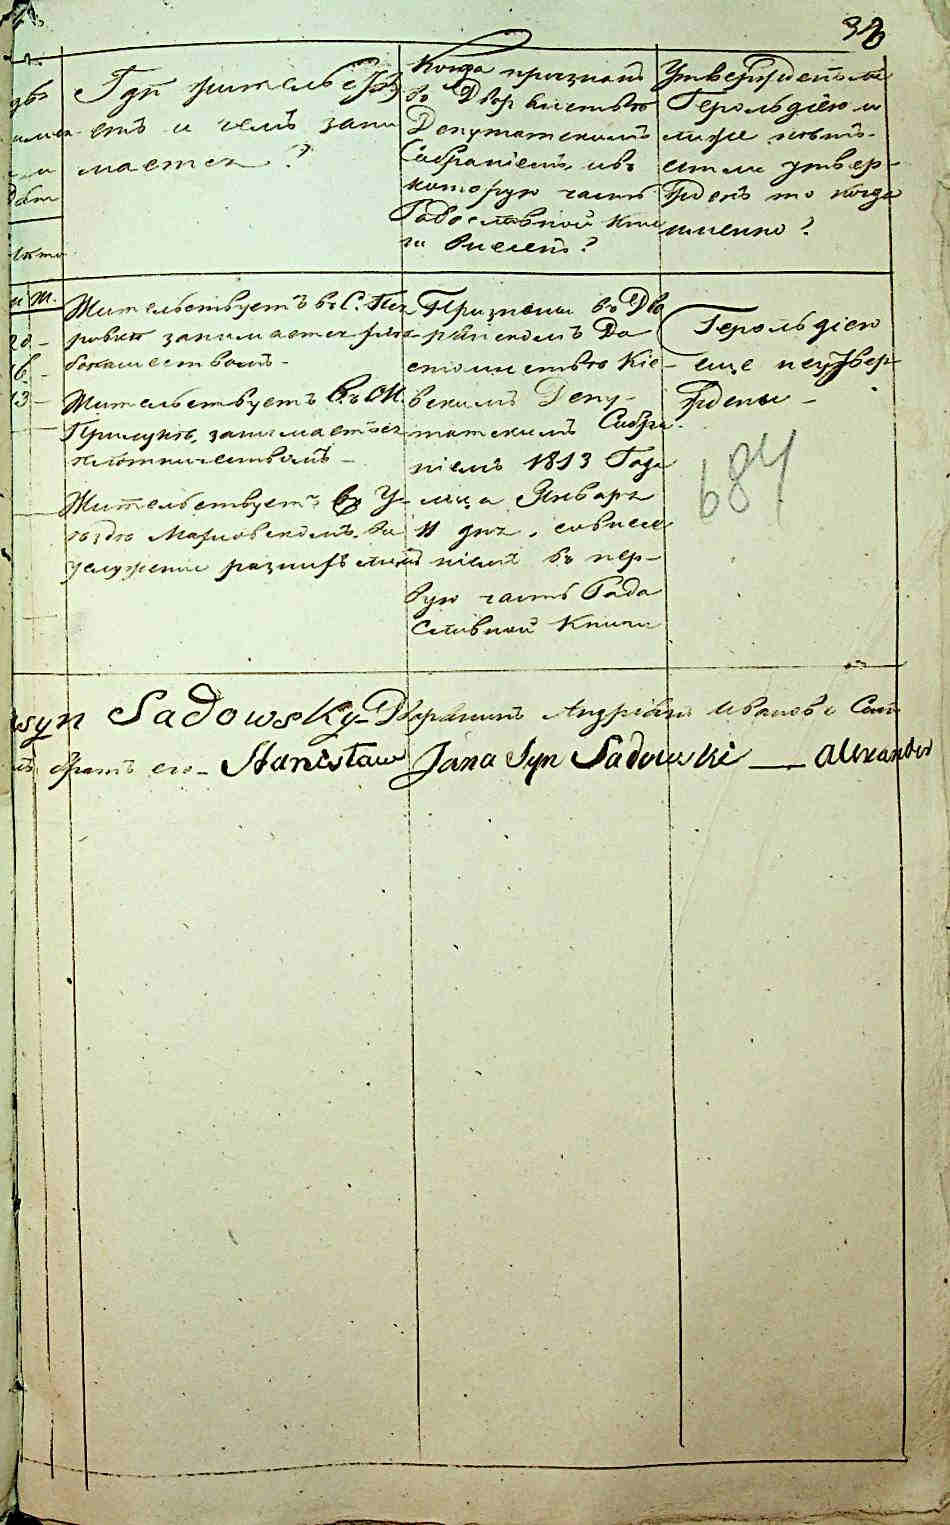 32
Гдѣ жительству
етъ и чемъ зани
мается?
Когда признанъ
въ Дворянствѣ
Депутатскимъ
Собраніемъ, и въ
которую часть
Родословной Кни
ги внесенъ?
Утвержденъ ли
Герольдіею и
если утвер-
жденъ то когда
именно?
м.
Жительствуетъ въ С. Пет
ровки занимается хлѣ
бопашествомъ
Жительствуетъ въ М.
Прилукѣ, занимается
Жительствуетъ въ У-
ездѣ Махновскомъ, въ
услуженіи разныхъ
Признаны въ Дво
рянскомъ До
стоинствѣ Кіе-
вскимъ Депу-
татскимъ Собра
ніемъ 1813 Года
м-ца Января
11 дня, со внесе
ніемъ въ пер-
вую часть Родо
словной Книги
Герольдіею
еще неутвер-
ждены
684
syn Sadowsky Дворянинъ Андрей Ивановъ
братъ его Stanisław Jana Syn Sadowski — Alexander